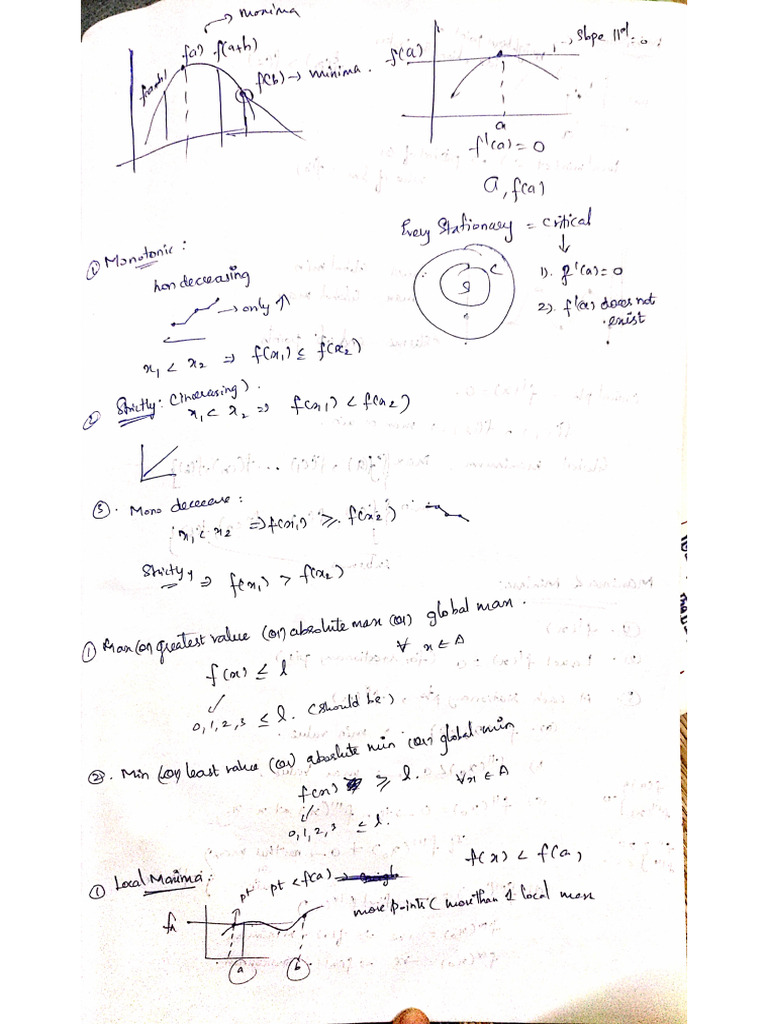 maxima
f(a) f(a+h)
f(b) → minima.
f(a)
slope 11el = 0;
a
f'(a) = 0
a, f(a)
Every Stationary = critical
S C
1). f'(a) = 0
2). f'(a) does not exist
① Monotonic:
non decreasing
→ only ↑
x₁ < x₂ ⇒ f(x₁) ≤ f(x₂)
② Strictly: (Increasing).
x₁ < x₂ ⇒ f(x₁) < f(x₂)
③. Mono decrease:
x₁ < x₂ ⇒ f(x₁) ≥ f(x₂)
Strictly, ⇒ f(x₁) > f(x₂)
① Max (or) greatest value (or) absolute max (or) global max.
f(x) ≤ l ∀ x ∈ A
0, 1, 2, 3 ≤ l. (should be)
②. Min (or) least value (or) absolute min (or) global min
f(x) ≥ l. ∀ x ∈ A
0, 1, 2, 3 ≤ l.
① Local Maxima:
pt pt < f(a) →
f(x) < f(a)
more points (more than 1 local max
a b